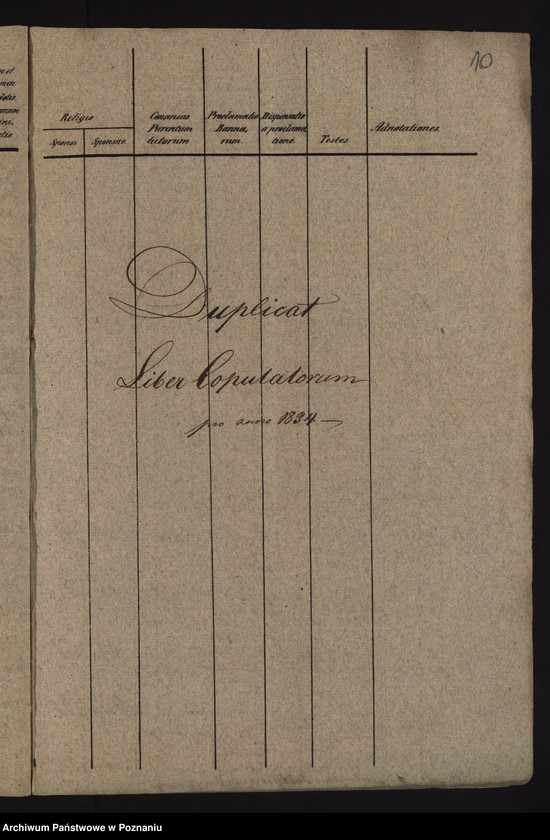 10
Religio
Sponsi
Sponsae
Consensus
Parentum
tutorum
Proclamatio
Banno,
rum
Dispensatio
a proclama,
tione
Testes
Adnotationes
Duplicat
Liber Copulatorum
pro anno 1834.
Archiwum Państwowe w Poznaniu